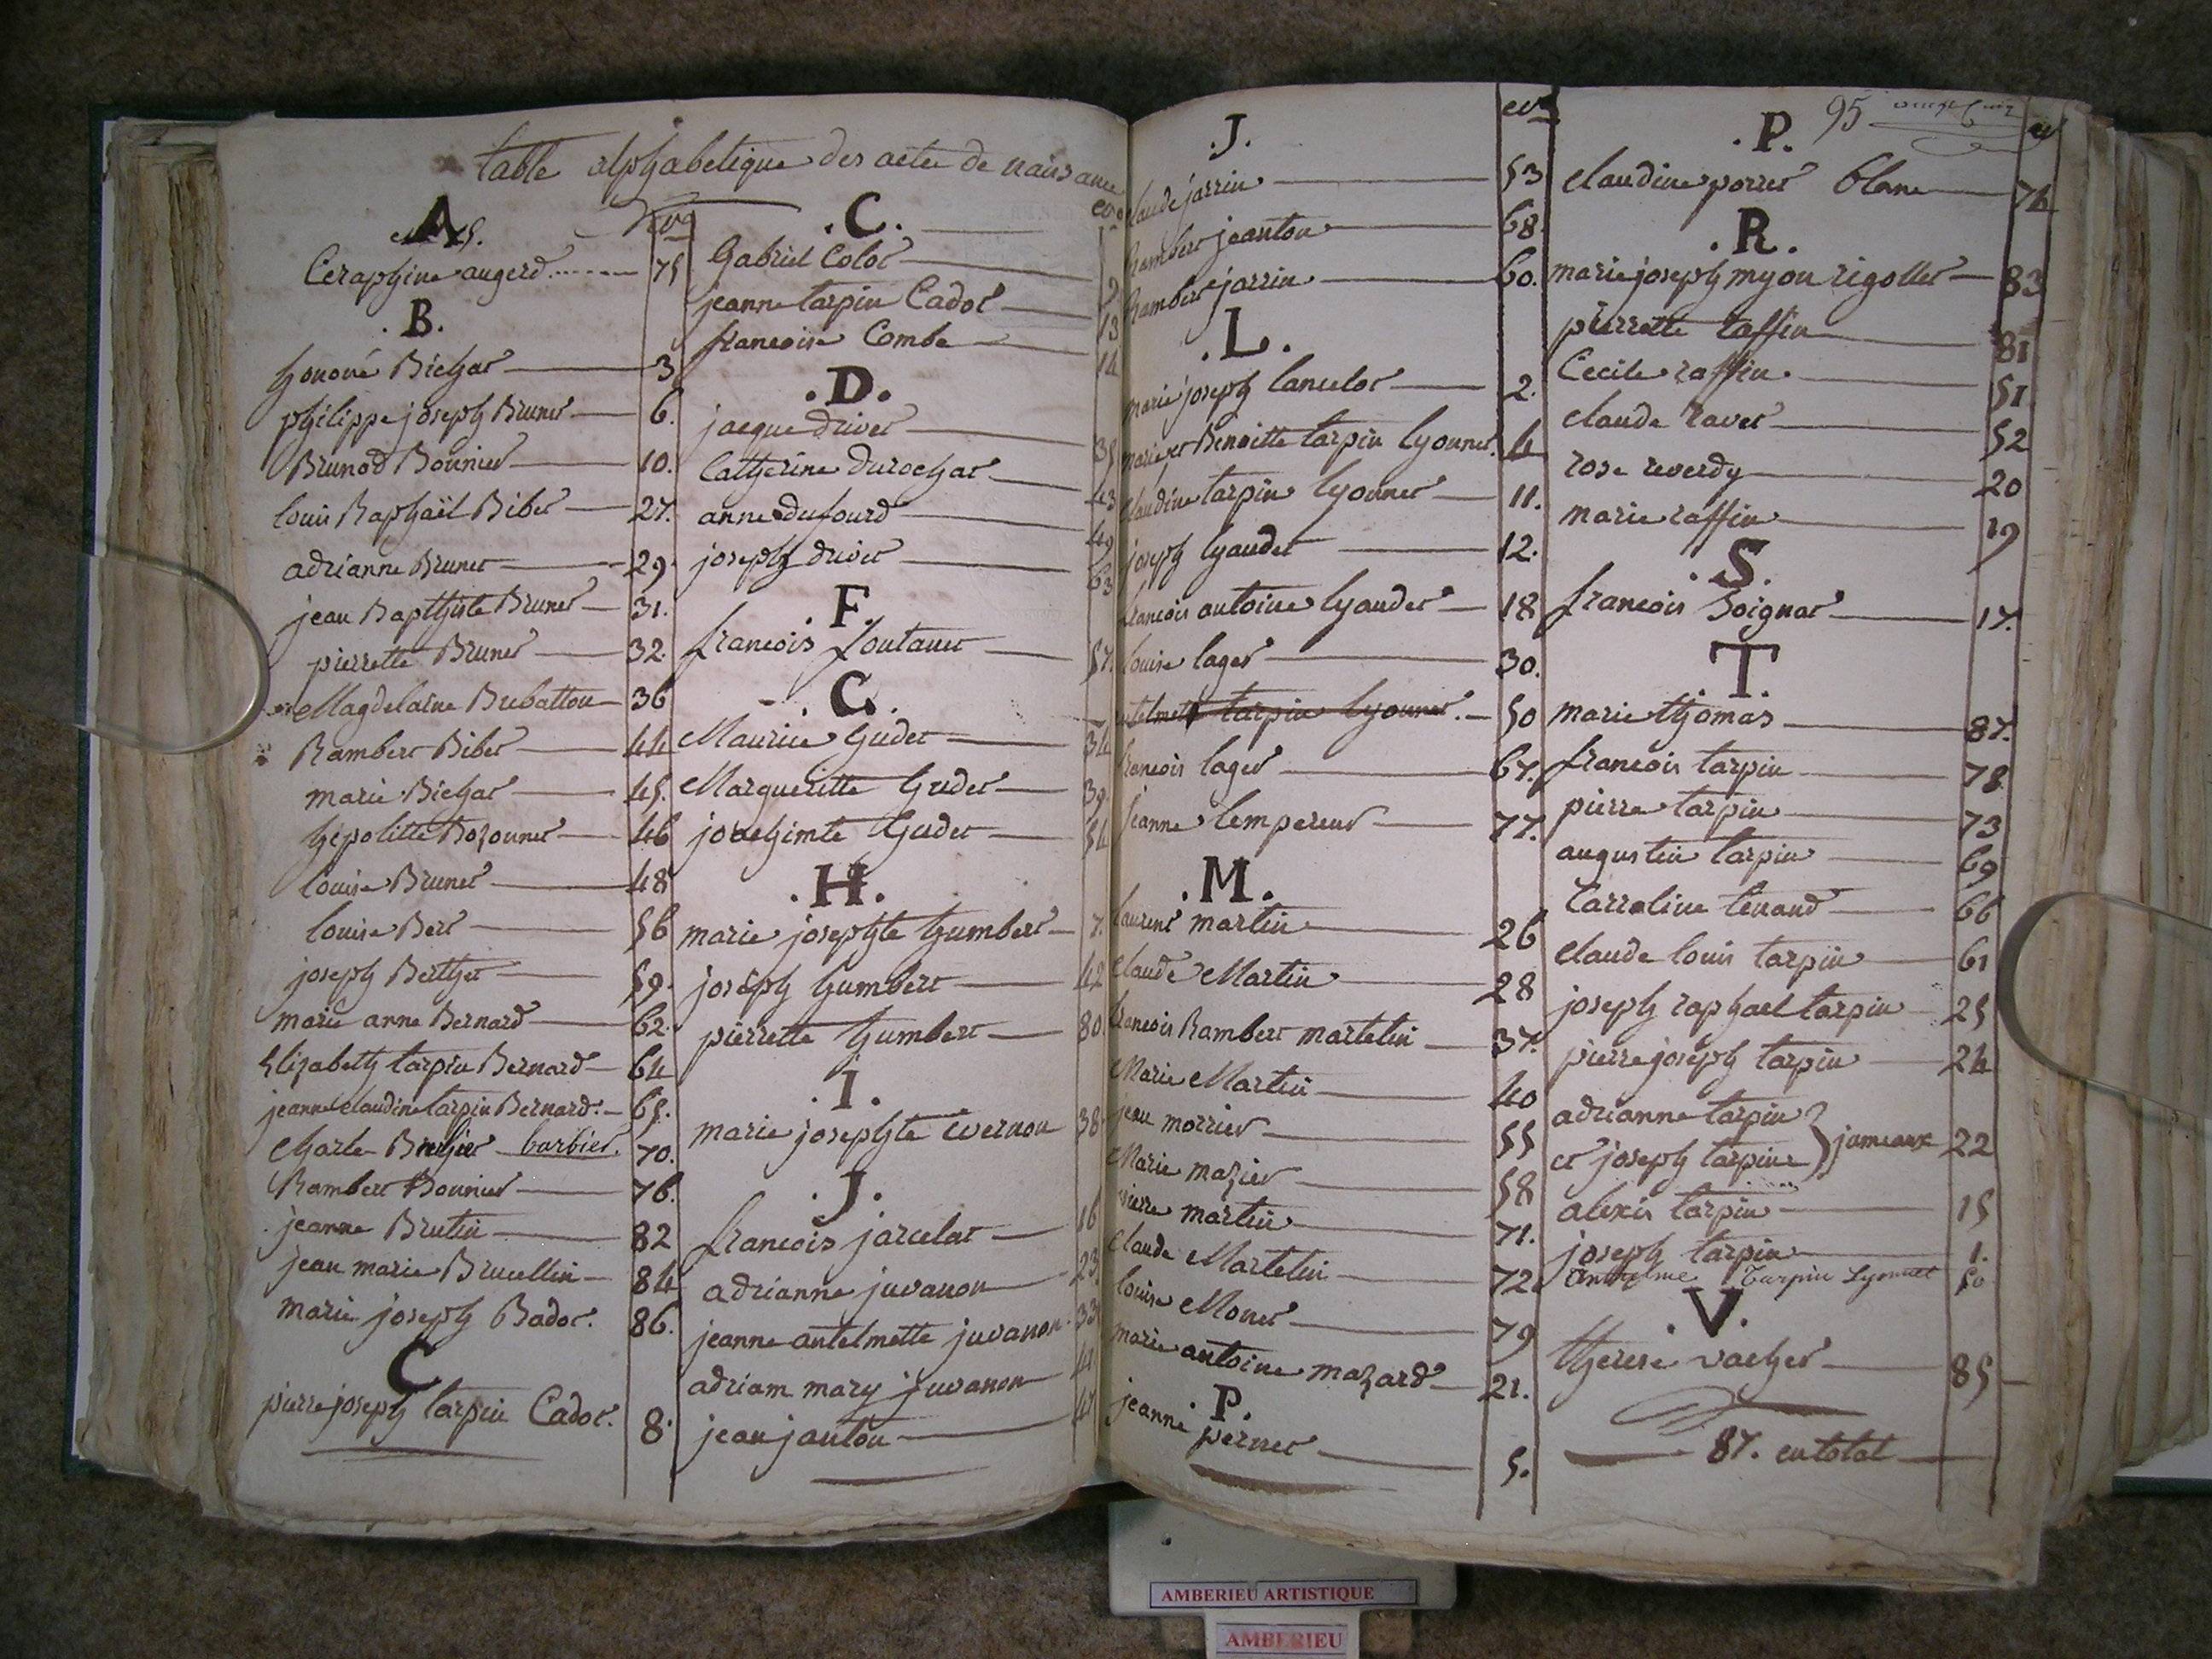 table alphabetique des actes de naissance
A
Ceraphine augerd 75
.B.
honoré Bichat 3
philippe joseph Brunet 6.
Brunod Bonnier 10.
louis Raphaël Bibet 27.
adrianne Brunet 29.
jean Bapthiste Brunet 31.
pierrette Brunet 32.
Magdelaine Brebatton 36
Rambert Bibet 44
marie Bichat 45.
hipolitte Bozonnet 46
louise Brunet 48
louise Bert 56
joseph Berthet 59.
marie anne Bernard 62.
Elizabeth tarpin Bernard 64
jeanne claudine tarpin Bernard. 65.
Charle barbier. 70.
Rambert Bonnier 76.
jeanne Brutin 82
jean marie Brucellin 84
marie joseph Badot. 86.
C
pierre joseph tarpin Cadot. 8.
.C.
Gabriel Colot 9
jeanne tarpin Cadot 13
francoise Combe 14
.D.
jacque drivet 35
Catherine durochat 43
anne dufourd 49
joseph drivet 63
.F.
francois fontanet 57.
G.
Maurice Gudet 34
Margueritte Gudet 39.
joachimte Gudet 54
.H.
marie josephte humbert 7.
joseph humbert 42
pierrette humbert 80
.I.
marie josephte ivernon 38
.J.
francois jarcelat 16
adrianne juvanon 23
jeanne antelmette juvanon 33
adriam mary juvanon 41
jean janton 47
.J.
claude jarrin 53
Rambert jeanton 68.
Rambert jarrin 60.
.L.
marie joseph lancelot 2.
marie et Benoitte tarpin lyonnet. 4
claudine tarpin lyonnet 11.
joseph lyaudet 12.
francois antoine lyaudet 18
louise lager 30.
antelmet tarpin lyonnet. 50
francois lager 67.
jeanne lempereur 77.
.M.
laurent martin 26
claude Martin 28
francois Rambert martelin 37.
Marie Martin 40
jean morrier 55
Marie mazier 58
pierre martin 71.
claude Martelin 72
louise Monet 79
marie antoine mazard 21.
.P.
jeanne pernet 5.
95
.P.
claudine porret blanc 74
.R.
marie joseph myon rigollet 83
pierrette raffin 81
Cecile raffin 51
claude ravet 52
rose reverdy 20
marie raffin 19
.S.
francois Soignat 17.
T.
marie thomas 87.
francois tarpin 78
pierre tarpin 73
augustin tarpin 69
Carroline tenand 66
claude louis tarpin 61
joseph raphael tarpin 25
pierre joseph tarpin 24
adrianne tarpin
et joseph tarpin } jumeaux 22
alexis tarpin 15
joseph tarpin 1.
Anthelme Tarpin Lyonnet 50
.V.
therese vacher 85
87. en total
AMBERIEU ARTISTIQUE
AMBERIEU